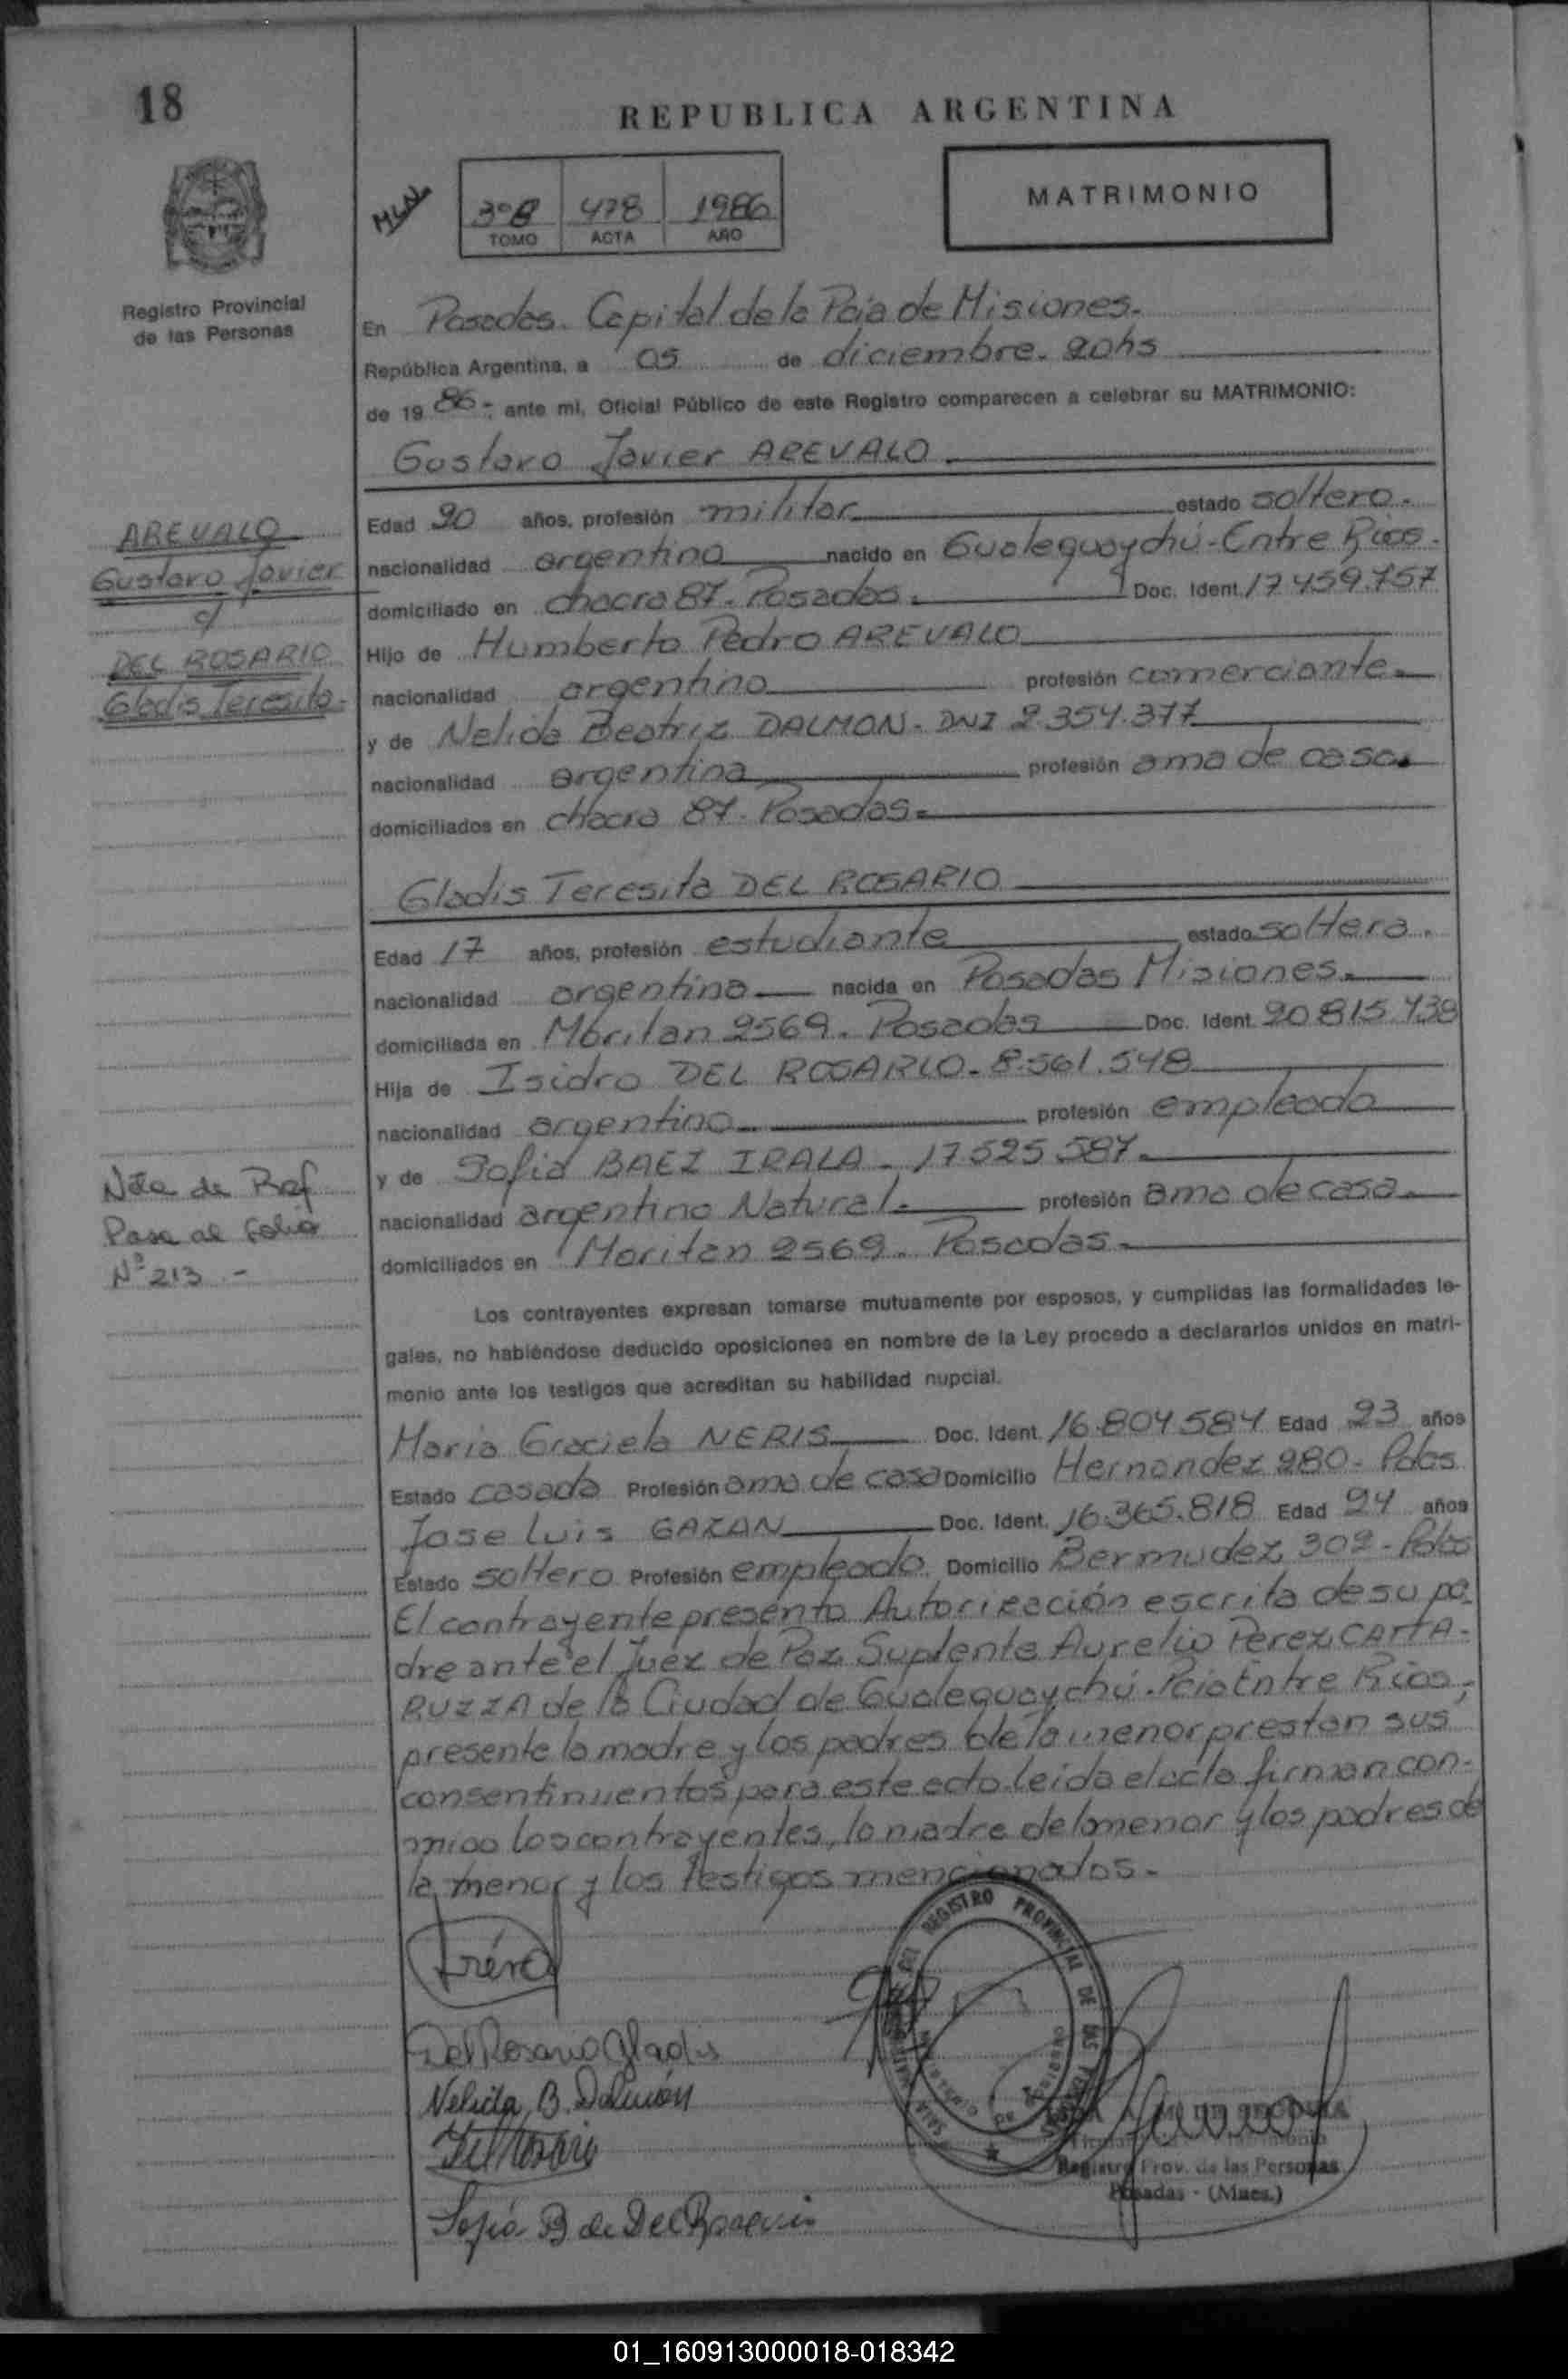 18
REPUBLICA ARGENTINA
MLN
3º B 478 1986
TOMO ACTA AÑO
MATRIMONIO
Registro Provincial
de las Personas
En Posadas. Capital de la Pcia de Misiones.
República Argentina, a 05 de diciembre. 20hs
de 19 86 - ante mi, Oficial Público de este Registro comparecen a celebrar su MATRIMONIO:
Gustavo Javier AREVALO
Edad 20 años, profesión militar estado soltero.
nacionalidad argentino nacido en Gualeguaychú - Entre Rios.
domiciliado en chacra 87. Posadas. Doc. Ident. 17 459.757
Hijo de Humberto Pedro AREVALO
nacionalidad argentino profesión comerciante.
y de Nelida Beatriz DALMON. DNI 2.354.377
nacionalidad argentina profesión ama de casa.
domiciliados en chacra 87. Posadas.
AREVALO
Gustavo Javier
c/
DEL ROSARIO
Gladis Teresita.
Gladis Teresita DEL ROSARIO
Edad 17 años, profesión estudiante estado soltera.
nacionalidad argentina nacida en Posadas Misiones.
domiciliada en Moritan 2569. Posadas Doc. Ident. 20 815 438
Hija de Isidro DEL ROSARIO. 8.561.548
nacionalidad argentino profesión empleado
y de Sofia BAEZ IRALA. 17.525.587.
nacionalidad argentina Natural. profesión ama de casa.
domiciliados en Moritan 2569. Posadas.
Nota de Ref
Pasa al folio
Nº 213 .-
Los contrayentes expresan tomarse mutuamente por esposos, y cumplidas las formalidades le-
gales, no habiéndose deducido oposiciones en nombre de la Ley procedo a declararlos unidos en matri-
monio ante los testigos que acreditan su habilidad nupcial.
Maria Graciela NERIS Doc. Ident. 16.804 584 Edad 23 años
Estado casada Profesión ama de casa Domicilio Hernandez 280 - Pdas
Jose Luis GAZAN Doc. Ident. 16.365.818 Edad 24 años
Estado soltero Profesión empleado. Domicilio Bermudez 302 - Pdas
El contrayente presento Autorización escrita de su pa-
dre ante el Juez de Paz Suplente Aurelio Perez CATTA-
RUZZA de la Ciudad de Gualeguaychú. Pcia Entre Rios,
presente la madre y los padres de la menor prestan sus
consentimientos para este acto. leida el acta firman con-
migo los contrayentes, la madre del menor y los padres de
la menor y los testigos mencionados.
Del Rosario Gladis
Nelida B. Dalmón
Sofia B de Del Rosario
REGISTRO PROVINCIAL DE LAS
Registro Prov. de las Personas
Posadas - (Mnes.)
01_160913000018-018342